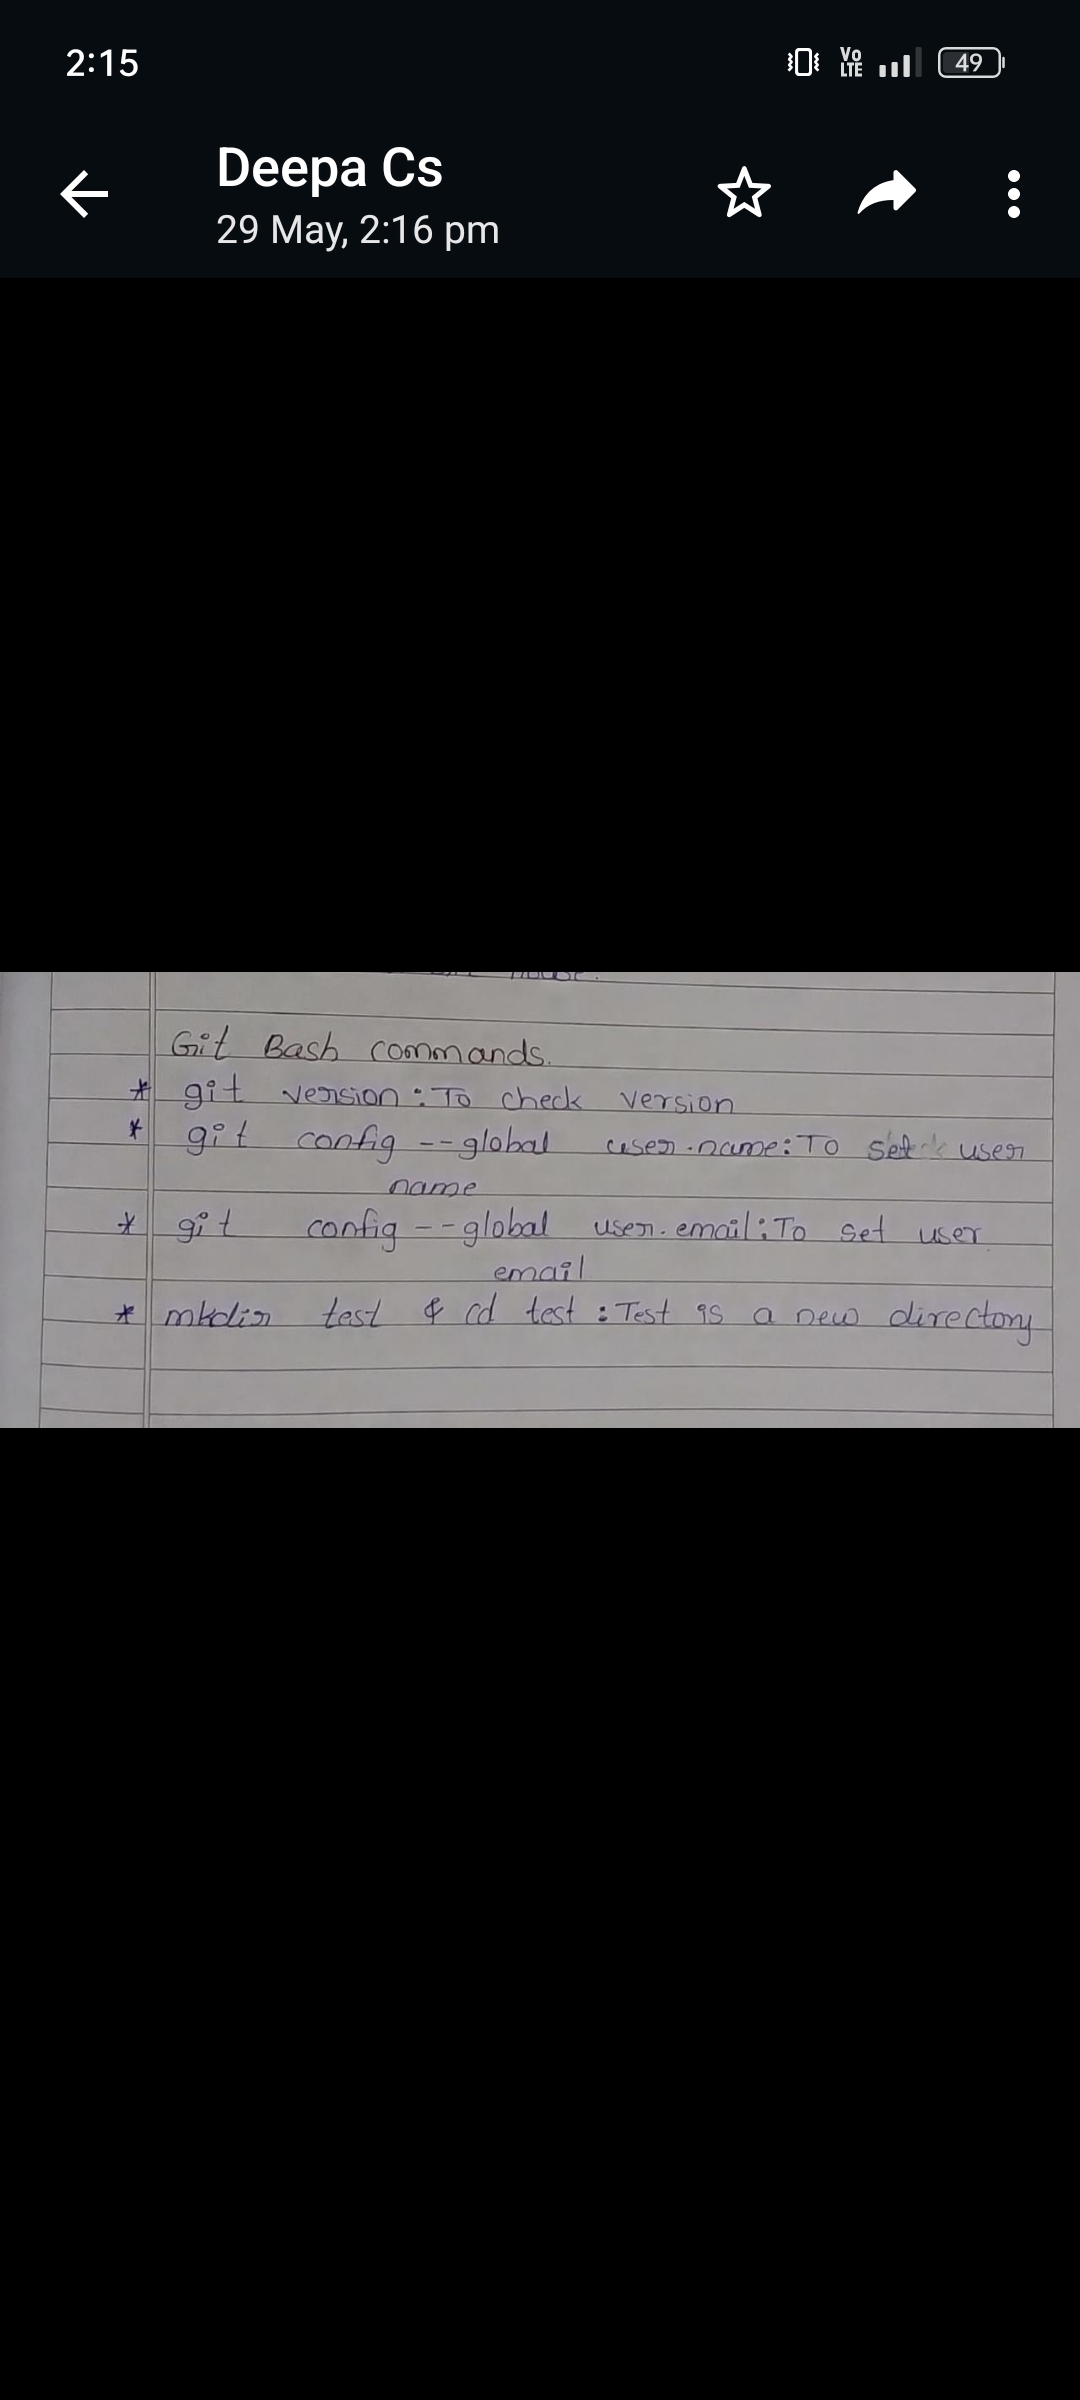 2:15
Vo
LTE
49
Deepa Cs
29 May, 2:16 pm
Git Bash commands.
* git version : To check version
* git config --global user.name: To set user
name
* git config --global user.email: To set user
email
* mkdir test & cd test : Test is a new directory